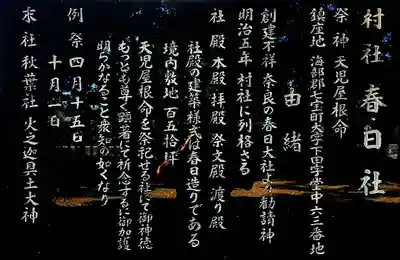 村社 春日社
祭神 天児屋根命
鎮座地 海部郡七宝町大字下田字堂中六三番地
由緒
創建不祥 奈良の春日大社より勧請神
明治五年 村社に列格さる
社殿 本殿 拝殿 祭文殿 渡り殿
社殿の建築様式は春日造りである
境内敷地 百五拾坪
天児屋根命を祭祀せる社にて御神徳
もっとも尊く顕著にて祈念するに御加護
明らかなること衆知の如くなり
例祭 四月十五日
十月一日
末社 秋葉社 火之迦具土大神